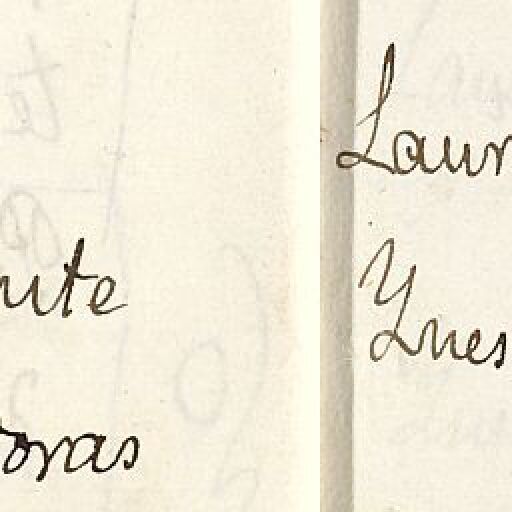 ute
oras
Laur
Ynes